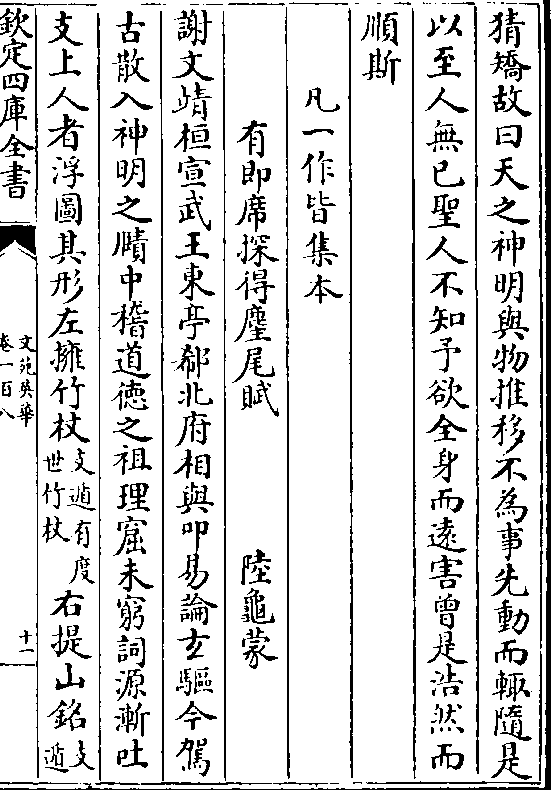 猜矯故曰天之神明與物推移不為事先動而輒隨是
以至人無已聖人不知予欲全身而逺害曾是浩然而
順斯
凡一作皆集本
有即席探得麈尾賦 陸龜蒙
謝文靖桓宣武王東亭郗北府相與叩易論𤣥驅今駕
古散入神明之賾中稽道徳之祖理窟未窮詞源漸吐
支上人者浮圖其形左擁竹杖支遁有度世竹杖右提山銘支遁
欽定四庫全書
文苑英華
卷一百八
十一